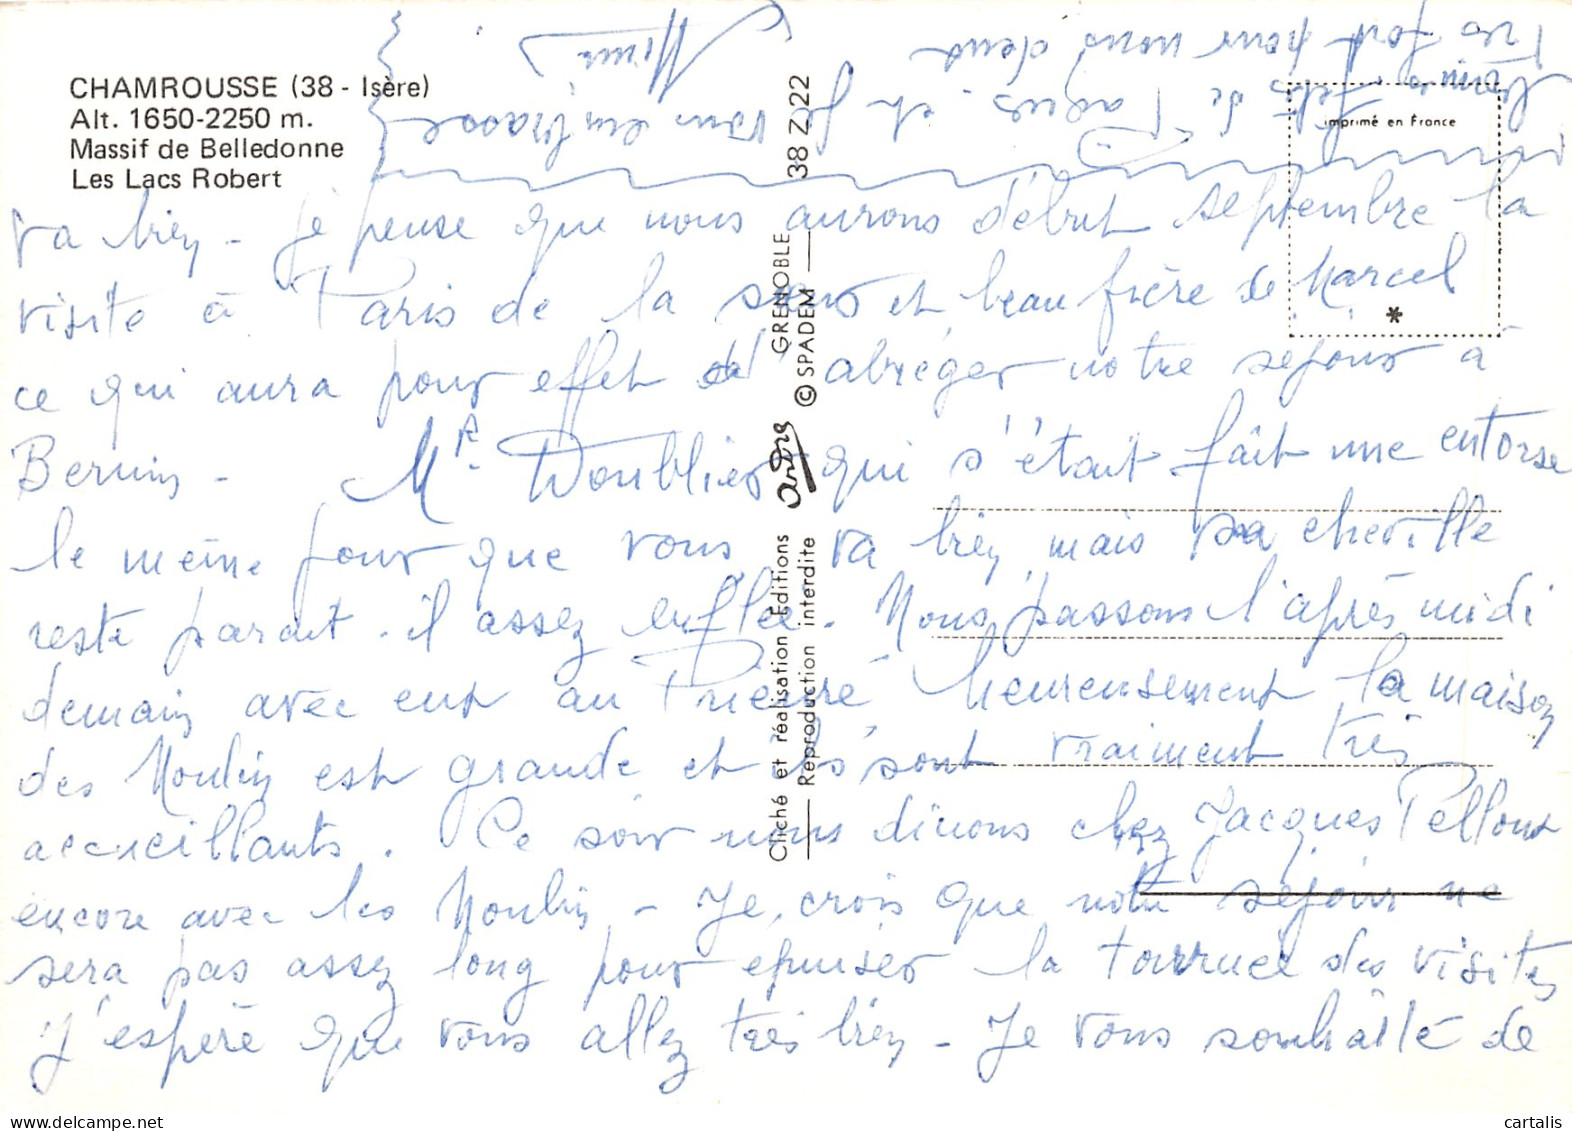 CHAMROUSSE (38 - Isère)
Alt. 1650-2250 m.
Massif de Belledonne
Les Lacs Robert
imprimé en France
va bien - je pense que nous aurons début septembre la
visite à Paris de la sœur et beau frère de Marcel
ce qui aura pour effet d'abréger notre séjour à
Bernin - Mr. Doublier qui s'était fait une entorse
le même jour que vous va bien mais sa cheville
reste parait-il assez enflée. Nous passons l'après midi
demain avec eux au Prieuré heureusement la maison
des Moulin est grande et ils sont vraiment très
accueillants. Ce soir nous dinons chez Jacques Pelloux
encore avec les Moulin - Je crois que notre séjour ne
sera pas assez long pour épuiser la tournée des visites
J'espère que vous allez très bien - Je vous souhaite de
bonnes fêtes de Pâques et je vous embrasse
très fort pour nous deux
Mimi
38 Z 22
GRENOBLE
© SPADEM
andré
Cliché et réalisation Editions
Reproduction interdite
*
delcampe.net
cartalis